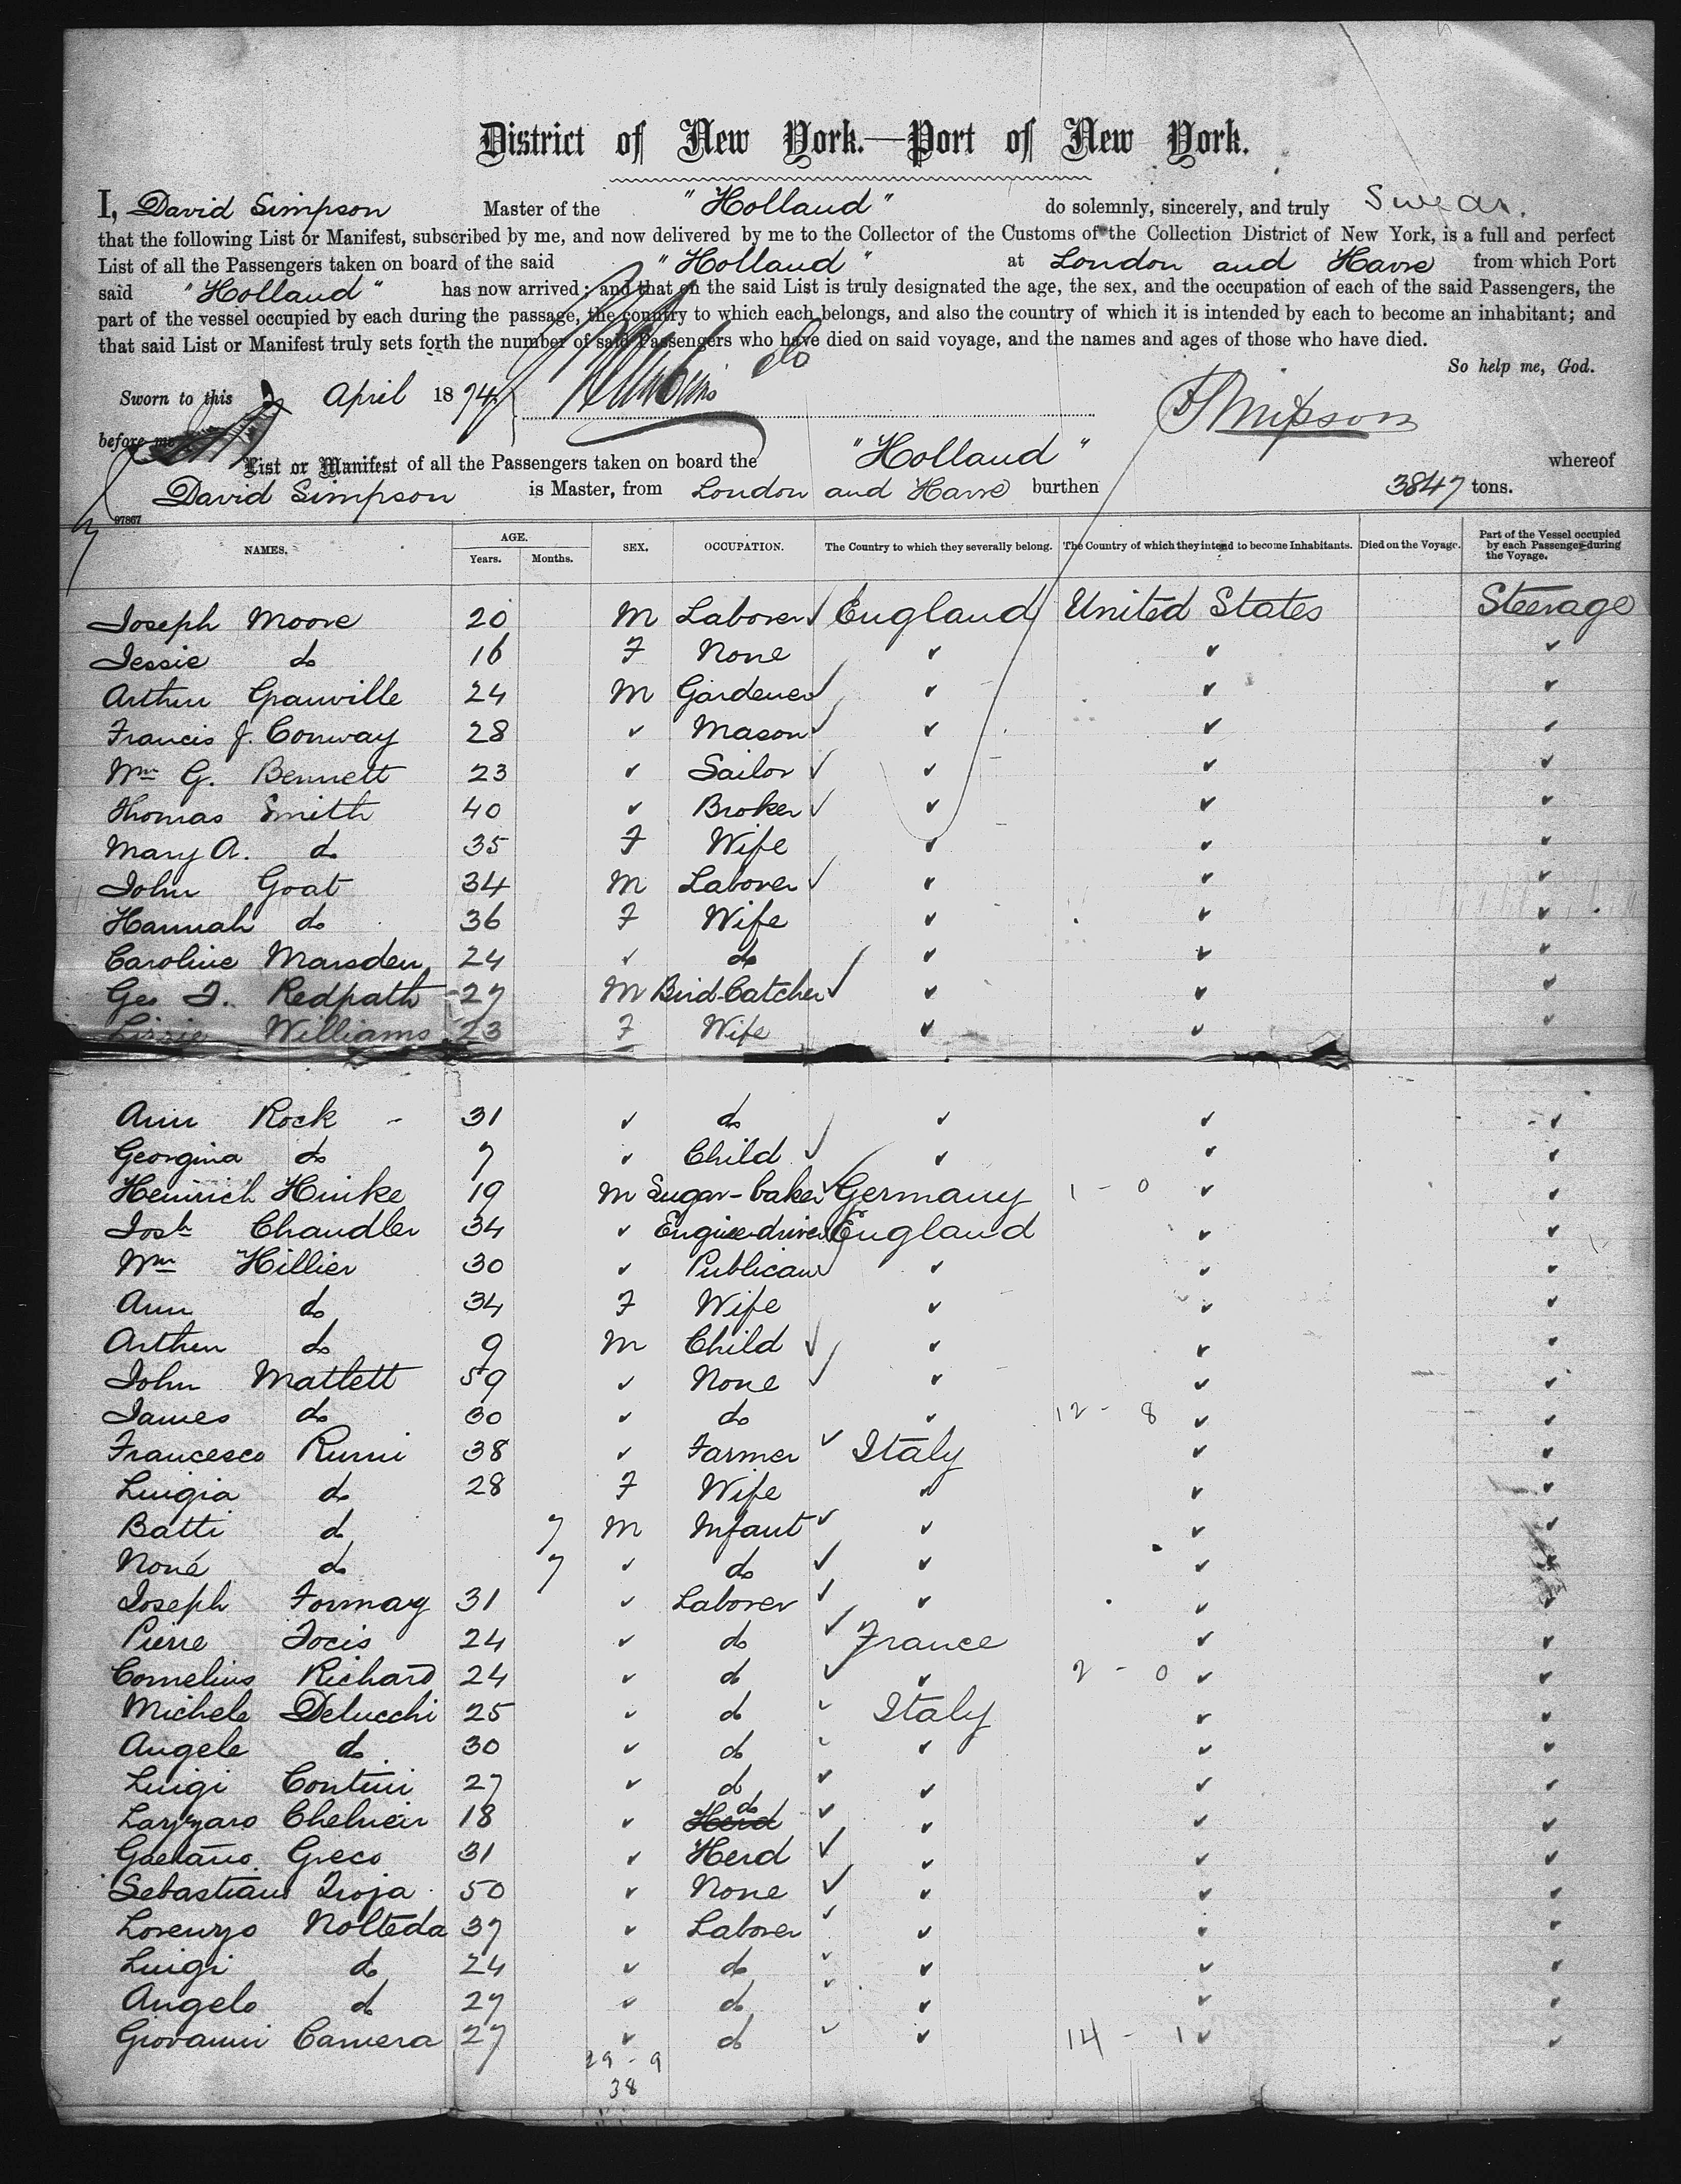 District of New York.—Port of New York.
I, David Simpson Master of the "Holland" do solemnly, sincerely, and truly Swear.
that the following List or Manifest, subscribed by me, and now delivered by me to the Collector of the Customs of the Collection District of New York, is a full and perfect
List of all the Passengers taken on board of the said "Holland" at London and Havre from which Port
said "Holland" has now arrived; and that on the said List is truly designated the age, the sex, and the occupation of each of the said Passengers, the
part of the vessel occupied by each during the passage, the country to which each belongs, and also the country of which it is intended by each to become an inhabitant; and
that said List or Manifest truly sets forth the number of said Passengers who have died on said voyage, and the names and ages of those who have died.
So help me, God.
Sworn to this 2 April 1874
D Simpson
before me
List or Manifest of all the Passengers taken on board the "Holland" whereof
David Simpson is Master, from London and Havre burthen 3847 tons.
97867
NAMES. AGE. Years. Months. SEX. OCCUPATION. The Country to which they severally belong. The Country of which they intend to become Inhabitants. Died on the Voyage. Part of the Vessel occupied by each Passenger during the Voyage.
Joseph Moore 20 M Laborer ✓ England United States Steerage
Jessie do 16 F None ✓ ✓ ✓
Arthur Granville 24 M Gardener ✓ ✓ ✓ ✓
Francis J. Conway 28 ✓ Mason ✓ ✓ ✓ ✓
Wm G. Bennett 23 ✓ Sailor ✓ ✓ ✓ ✓
Thomas Smith 40 ✓ Broker ✓ ✓ ✓ ✓
Mary A. do 35 F Wife ✓ ✓ ✓
John Goat 34 M Laborer ✓ ✓ ✓ ✓
Hannah do 36 F Wife ✓ ✓ ✓
Caroline Marsden 24 ✓ do ✓ ✓ ✓
Geo F. Redpath 27 M Bird-Catcher ✓ ✓ ✓ ✓
Lizzie Williams 23 F Wife ✓ ✓ ✓
Ann Rock 31 ✓ do ✓ ✓ ✓
Georgina do 7 ✓ Child ✓ ✓ ✓ ✓
Heinrich Hinke 19 M Sugar-baker ✓ Germany 1 - 0 ✓ ✓
Josh Chandler 34 ✓ Engine-driver England ✓ ✓
Wm Hillier 30 ✓ Publican ✓ ✓ ✓ ✓
Ann do 34 F Wife ✓ ✓ ✓
Arthur do 9 M Child ✓ ✓ ✓ ✓
John Matlett 59 ✓ None ✓ ✓ ✓ ✓
James do 30 ✓ do ✓ 12 - 8 ✓ ✓
Francesco Rumi 38 ✓ Farmer ✓ Italy ✓ ✓
Luigia do 28 F Wife ✓ ✓ ✓
Batti do 7 M Infant ✓ ✓ ✓ ✓
Noné do 7 ✓ do ✓ ✓ ✓ ✓
Joseph Formay 31 ✓ Laborer ✓ ✓ ✓ ✓
Pierre Focis 24 ✓ do ✓ France ✓ ✓
Cornelius Richard 24 ✓ do ✓ ✓ 2 - 0 ✓ ✓
Michele Delucchi 25 ✓ do ✓ Italy ✓ ✓
Angele do 30 ✓ do ✓ ✓ ✓ ✓
Luigi Contini 27 ✓ do ✓ ✓ ✓ ✓
Lazzaro 18 ✓ Herd do ✓ ✓ ✓ ✓
Gaetano Greco 31 ✓ Herd ✓ ✓ ✓ ✓
Sebastiano Troja 50 ✓ None ✓ ✓ ✓ ✓
Lorenzo Nolteda 37 ✓ Laborer ✓ ✓ ✓ ✓
Luigi do 24 ✓ do ✓ ✓ ✓ ✓
Angelo do 27 ✓ do ✓ ✓ ✓ ✓
Giovanni Camera 27 ✓ do ✓ ✓ 14 - 1 ✓ ✓
29 - 9
38